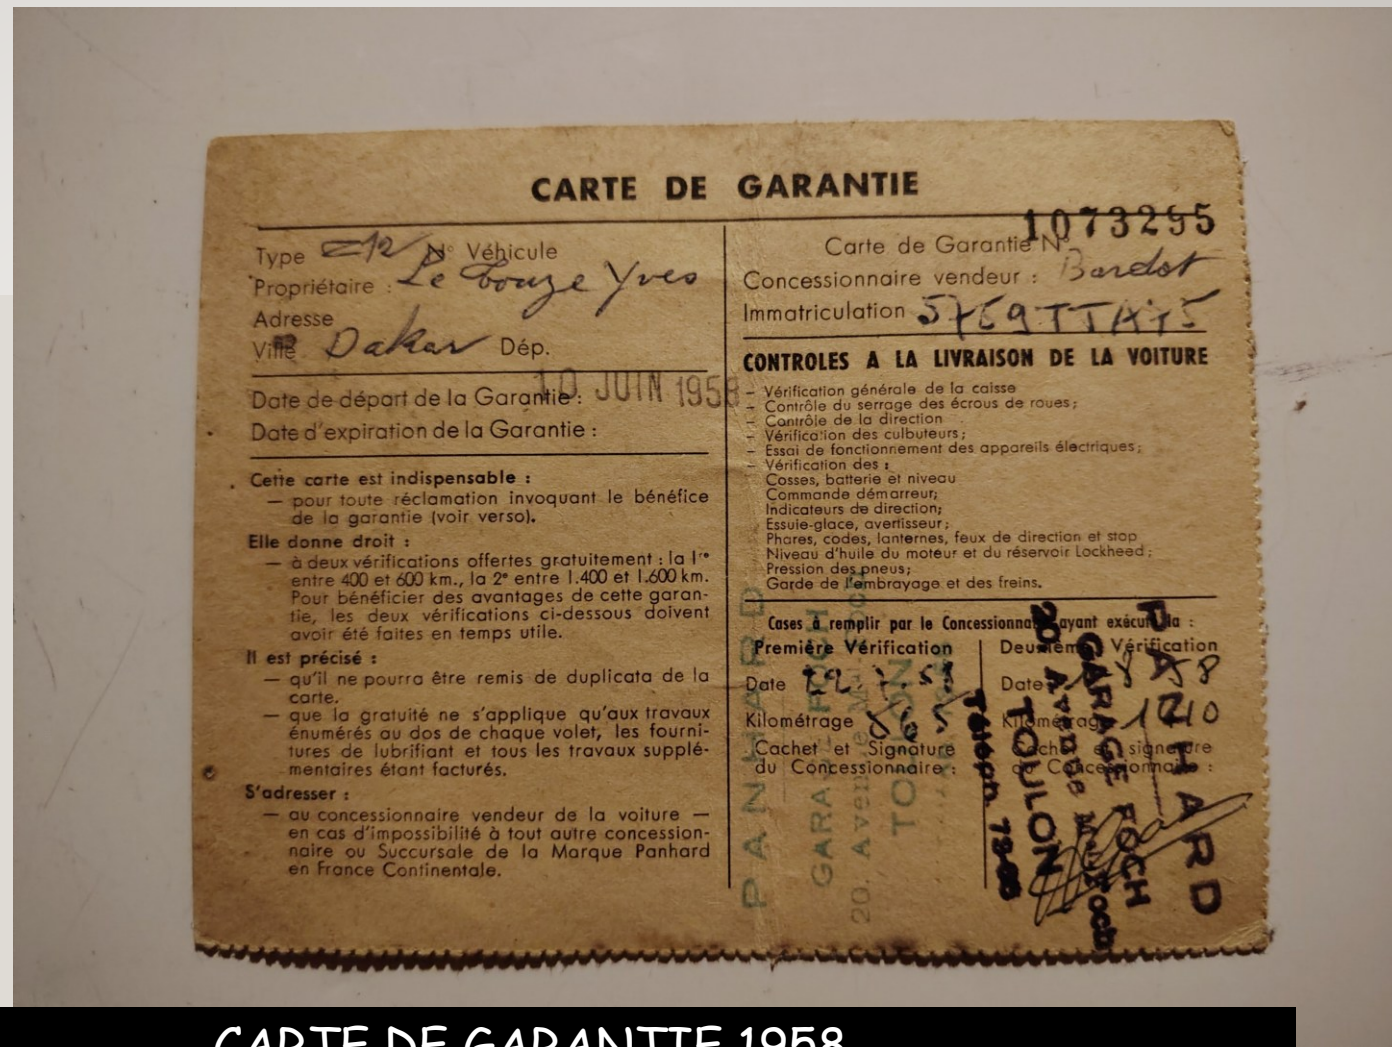 CARTE DE GARANTIE
1073295
Type Z12 N° Véhicule
Propriétaire : Le Yves
Adresse
Ville Dakar Dép.
Date de départ de la Garantie : 10 JUIN 1958
Date d'expiration de la Garantie :
Cette carte est indispensable :
— pour toute réclamation invoquant le bénéfice
de la garantie (voir verso).
Elle donne droit :
— à deux vérifications offertes gratuitement : la 1re
entre 400 et 600 km., la 2e entre 1.400 et 1.600 km.
Pour bénéficier des avantages de cette garan-
tie, les deux vérifications ci-dessous doivent
avoir été faites en temps utile.
Il est précisé :
— qu'il ne pourra être remis de duplicata de la
carte.
— que la gratuité ne s'applique qu'aux travaux
énumérés au dos de chaque volet, les fourni-
tures de lubrifiant et tous les travaux supplé-
mentaires étant facturés.
S'adresser :
— au concessionnaire vendeur de la voiture —
en cas d'impossibilité à tout autre concession-
naire ou Succursale de la Marque Panhard
en France Continentale.
Carte de Garantie N°
Concessionnaire vendeur : Bardot
Immatriculation
CONTROLES A LA LIVRAISON DE LA VOITURE
— Vérification générale de la caisse
— Contrôle du serrage des écrous de roues;
— Contrôle de la direction
— Vérification des culbuteurs;
— Essai de fonctionnement des appareils électriques;
— Vérification des :
Cosses, batterie et niveau
Commande démarreur;
Indicateurs de direction;
Essuie-glace, avertisseur;
Phares, codes, lanternes, feux de direction et stop
Niveau d'huile du moteur et du réservoir Lockheed;
Pression des pneus;
Garde de l'embrayage et des freins.
Cases à remplir par le Concessionnaire ayant exécuté la :
Première Vérification
Date
Kilométrage 565
Cachet et Signature
du Concessionnaire :
Deuxième Vérification
Date 8 58
Kilométrage 1710
Cachet et signature
du Concessionnaire :
PANHARD
GARAGE FOCH
20, Avenue Mal Foch
TOULON
PANHARD
GARAGE FOCH
20, Avenue Mal Foch
TOULON
Téléph.
CARTE DE GARANTIE 1958